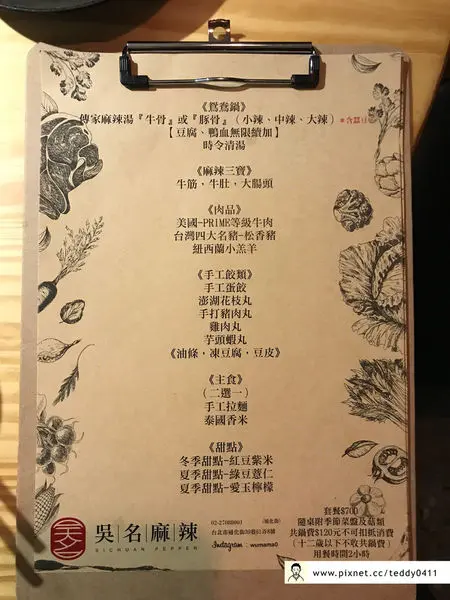 《鴛鴦鍋》
傳家麻辣湯『牛骨』或『豚骨』（小辣、中辣、大辣）*含蠶豆
【豆腐、鴨血無限續加】
時令清湯
《麻辣三寶》
牛筋，牛肚，大腸頭
《肉品》
美國-PRIME等級牛肉
台灣四大名豬-松香豬
紐西蘭小羔羊
《手工餃類》
手工蛋餃
澎湖花枝丸
手打豬肉丸
雞肉丸
芋頭蝦丸
《油條，凍豆腐，豆皮》
《主食》
（二選一）
手工拉麵
泰國香米
《甜點》
冬季甜點-紅豆紫米
夏季甜點-綠豆薏仁
夏季甜點-愛玉檸檬
套餐$700
隨桌附季節菜盤及菇類
共鍋費$120元不可扣抵消費
（十二歲以下不收共鍋費）
用餐時間2小時
吳名麻辣
SICHUAN PEPPER
Instagram : wumama0
www.pixnet.cc/teddy0411